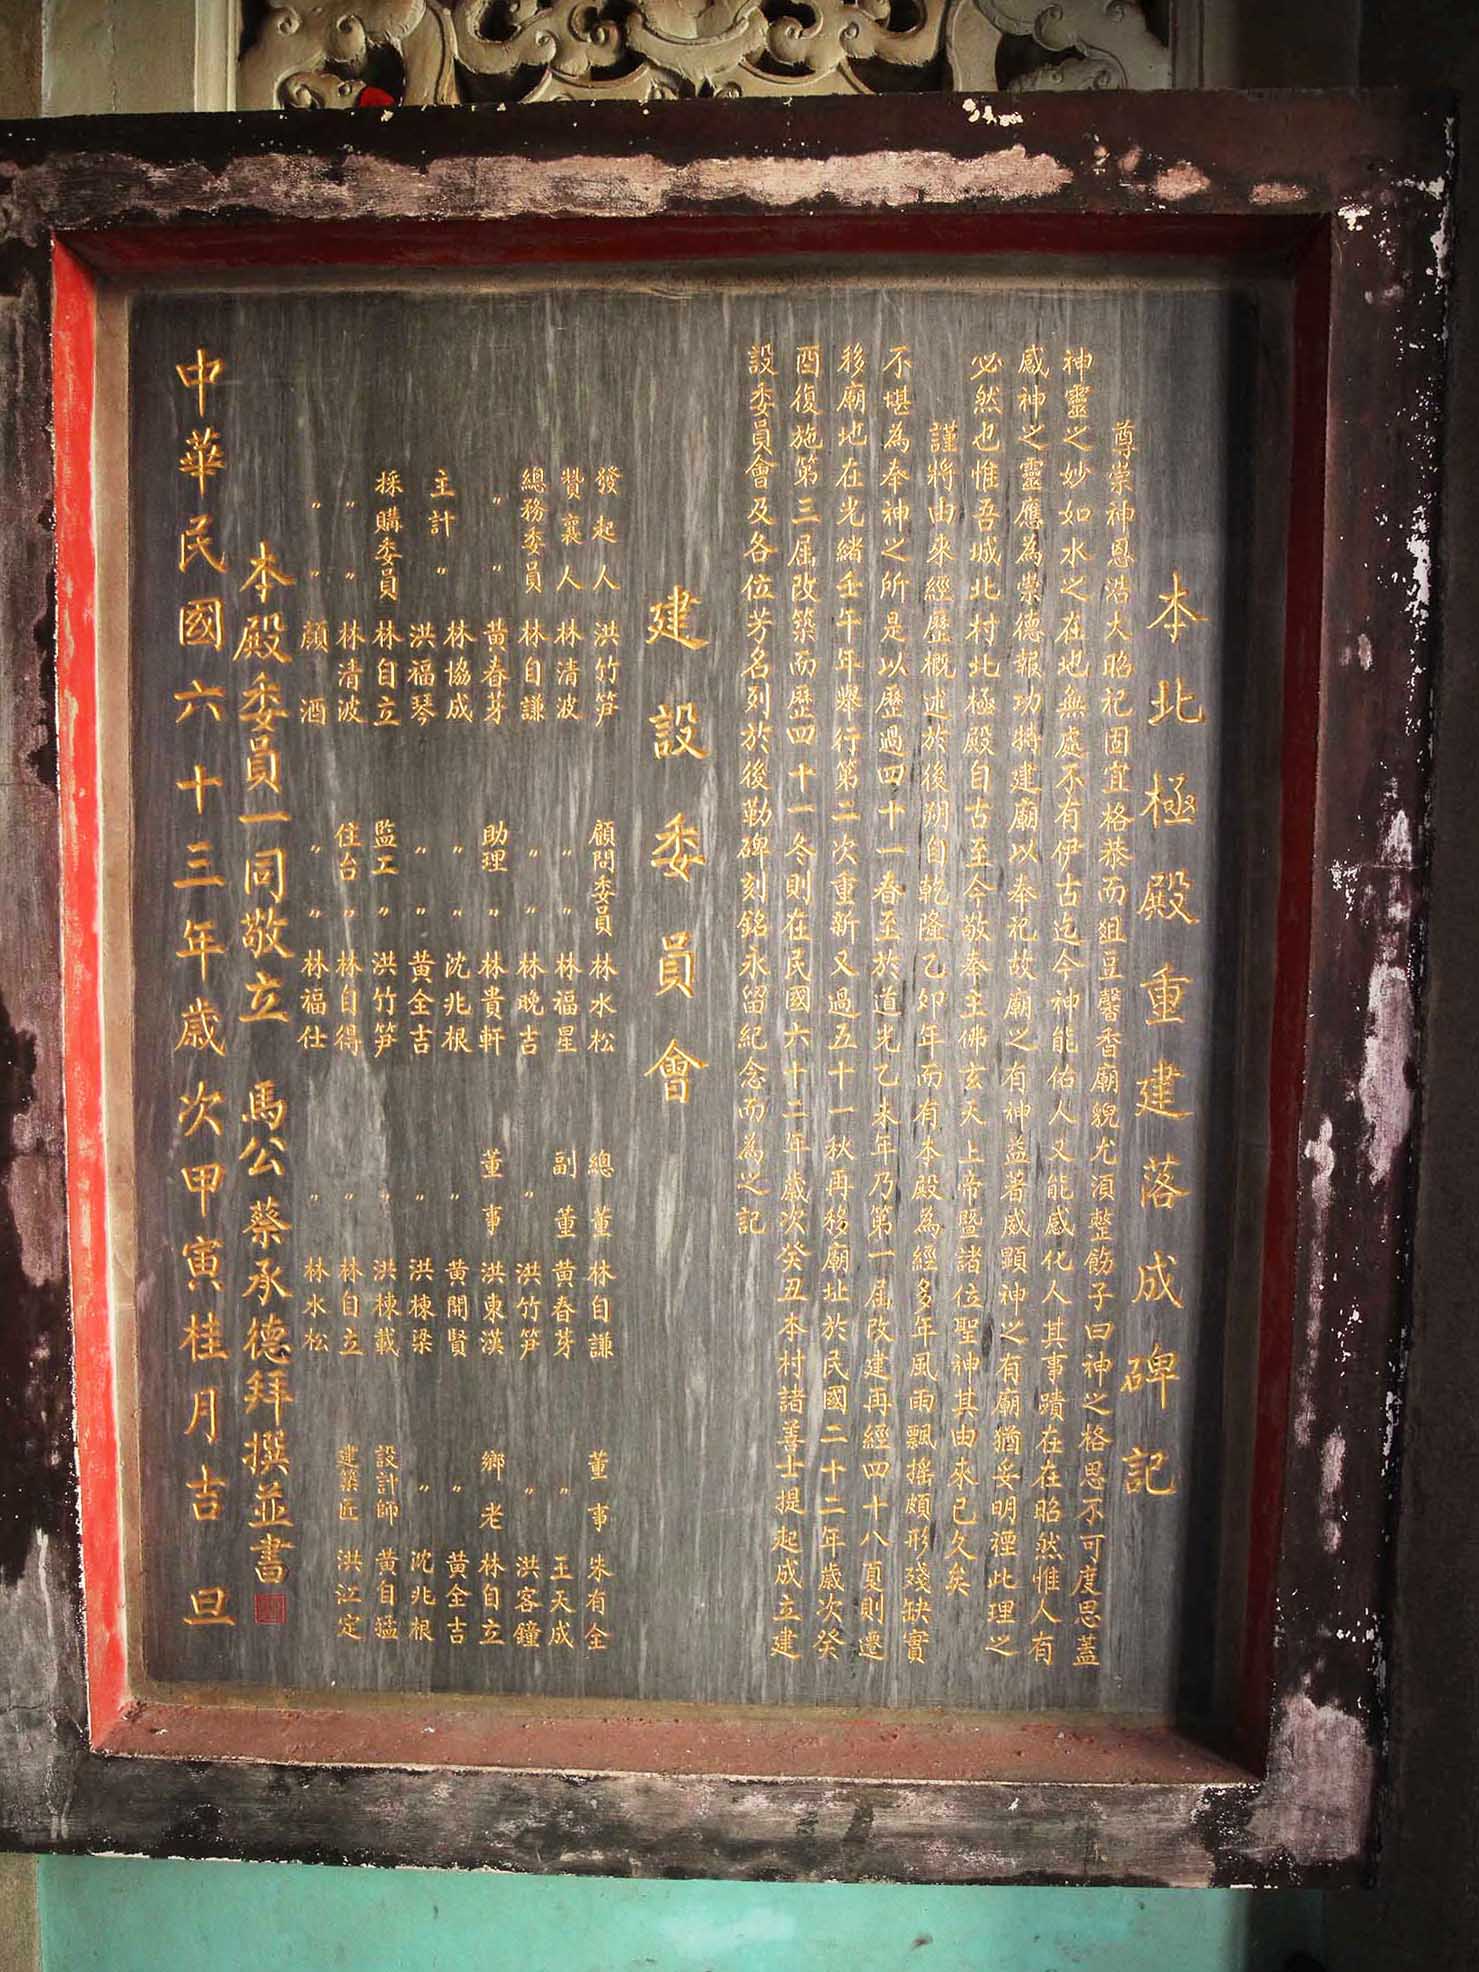 本北極殿重建落成碑記
尊崇神恩浩大昭祀固宜格恭而俎豆馨香廟貌尤須整飭子曰神之格思不可度思蓋
神靈之妙如水之在地無處不有伊古迄今神能佑人又能感化人其事蹟在在昭然惟人有
感神之靈應為崇德報功特建廟以奉祀故廟之有神益著威顯神之有廟猶妥明禋此理之
必然也惟吾城北村北極殿自古至今敬奉主佛玄天上帝暨諸位聖神其由來已久矣
謹將由來經歷概述於後朔自乾隆乙卯年而有本殿為經多年風雨飄搖頗形殘缺實
不堪為奉神之所是以歷過四十一春至於道光乙未年乃第一屆改建再經四十八夏則遷
移廟地在光緒壬午年舉行第二次重新又過五十一秋再移廟址於民國二十二年歲次癸
酉復施第三屆改築而歷四十一冬則在民國六十二年歲次癸丑本村諸善士提起成立建
設委員會及各位芳名列於後勒碑刻銘永留紀念而為之記
建設委員會
發起人 洪竹笋 顧問委員 林水松 總董 林自謙 董事 朱有全
贊襄人 林清波 〃 〃 林福星 副董 黃春芽 〃 王天成
總務委員 林自謙 〃 〃 林晚吉 〃 洪竹笋 〃 洪客鐘
〃 〃 黃春芽 助理 〃 林貴軒 董事 洪東漢 鄉老 林自立
主計 〃 林協成 〃 〃 沈兆根 〃 黃開賢 〃 黃全吉
洪福琴 〃 〃 黃全吉 〃 洪棟梁 〃 沈兆根
採購委員 林自立 監工 〃 洪竹笋 〃 洪棟載 設計師 黃自猛
〃 〃 林清波 住台 〃 林自得 〃 林自立 建築匠 洪江定
〃 〃 顏酒 〃 〃 林福仕 〃 林水松
本殿委員一同敬立 馬公蔡承德拜撰並書
中華民國六十三年歲次甲寅桂月吉旦